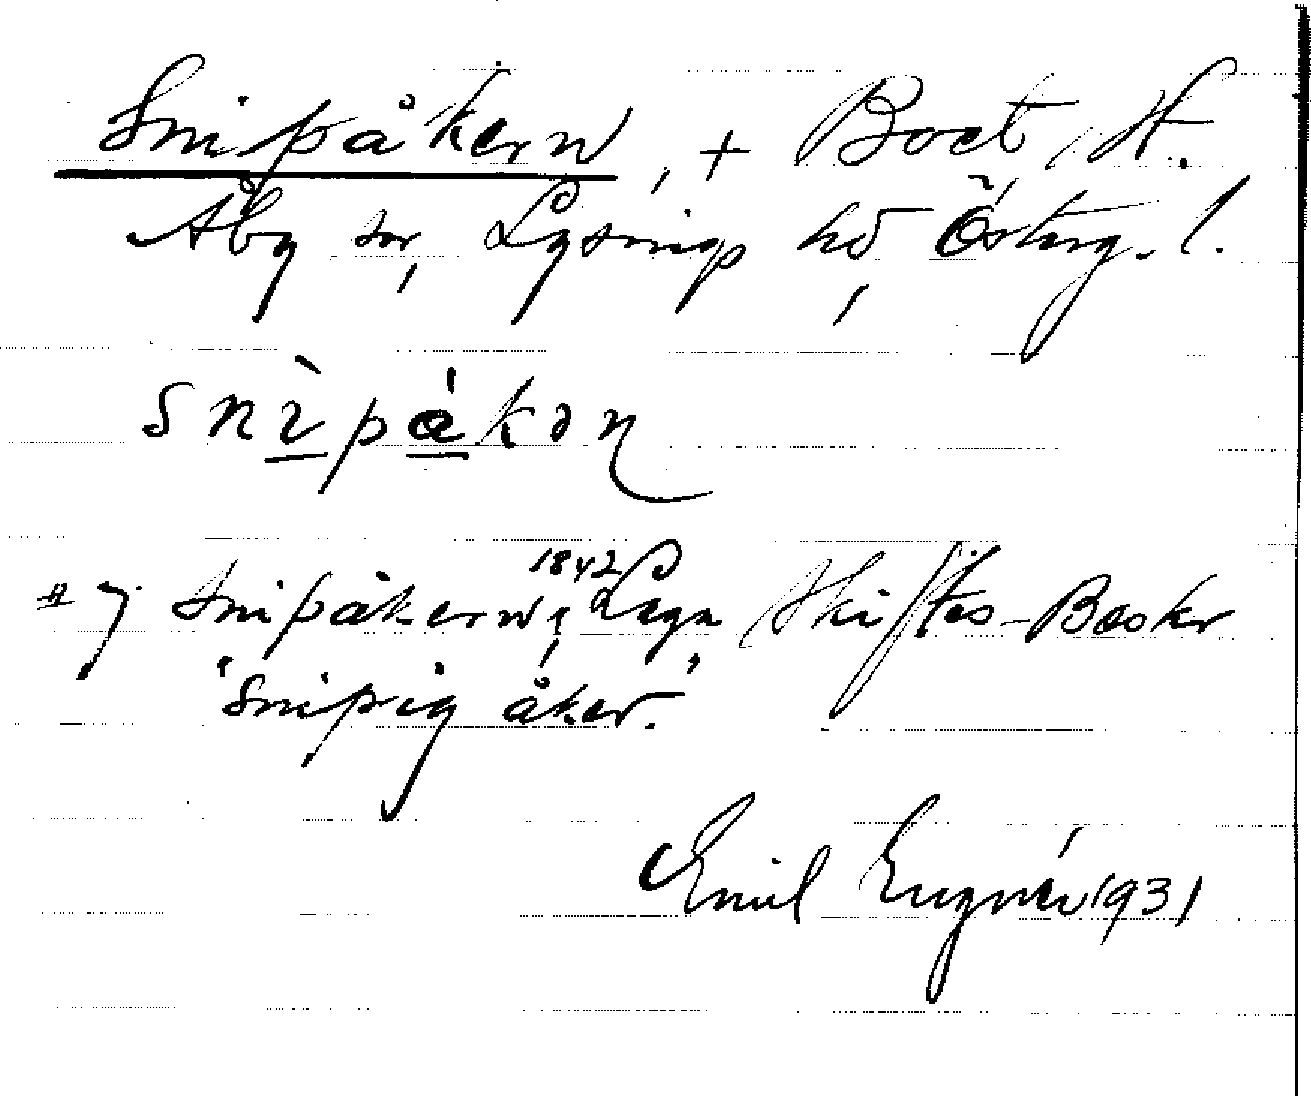 Snipåkern, + Boet, H.
Åby sn, Lysings hd Österg. l.
snìpåkən
#7 Snipåkern, 1842 Laga Skiftes-Beskr
"Snipig åker."
Emil Eugnér 1931